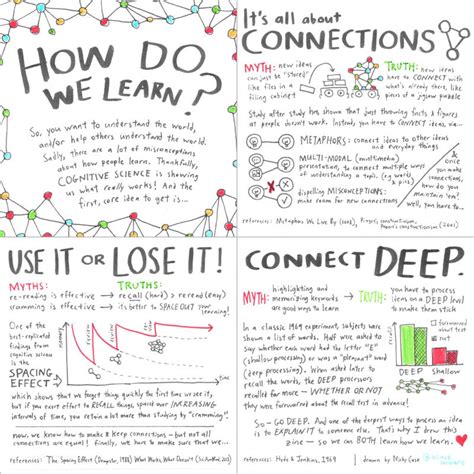 HOW DO
WE LEARN?
So, you want to understand the world,
and/or help others understand the world.
Sadly, there are a lot of misconceptions
about how people learn. Thankfully,
COGNITIVE SCIENCE is showing
us what really works! And the
first, core idea to get is...
It's all about
CONNECTIONS
MYTH: new ideas
can just be "stored"
like files in a
filing cabinet
TRUTH: new ideas
have to CONNECT with
what's already there, like
pieces of a jigsaw puzzle
Study after study has shown that just throwing facts & figures
at people doesn't work. Instead, you have to CONNECT ideas, via...
METAPHORS: connect ideas to other ideas
and everyday things
MULTI-MODAL (multimedia)
presentation, to connect multiple ways
of understanding a topic. (eg words
& pics)
dispelling MISCONCEPTIONS:
make room for new connections!
&
once
you make
connections,
how do
you maintain
'em?
well,
you have to...
references: Metaphors We Live By
USE IT OR LOSE IT!
MYTHS:
re-reading is effective
cramming is effective
TRUTHS:
recall (hard) > reread (easy)
it's better to SPACE OUT your
learning!
One of the
best-replicated
findings from
cognitive science
is the
SPACING
EFFECT
memory
review
review
time
which shows that we forget things quickly the first time we see it,
but if you exert effort to RECALL things, spaced over INCREASING
intervals of time, you retain a lot more than studying by "cramming".
now, we know how to make & keep connections – but not all
connections are equal! Finally, we have to make sure that we...
references: The Spacing Effect (Dempster, 1988) What Works, What Doesn't
CONNECT DEEP.
MYTH: highlighting and
memorizing keywords
are good ways to learn
TRUTH: you have to process
ideas on a DEEP level
to make them stick
In a classic 1969 experiment, subjects were
shown a list of words. Half were asked to
say whether each word had the letter "E"
(shallow processing) or was a "pleasant" word
(deep processing). When asked later to
recall the words, the DEEP processors
recalled far more – WHETHER OR NOT
they were forewarned about the recall test in advance!
forewarned about
test
not
DEEP
shallow
So – GO DEEP. And one of the deepest ways to process an idea
is to EXPLAIN IT to someone else. That's why I drew this
zine – so we can BOTH learn how we learn.
references: Hyde & Jenkins, 1969
drawn by Nicky Case